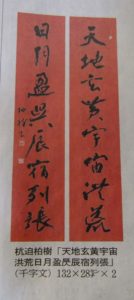 天地玄黄宇宙洪荒
日月盈昃辰宿列張
杭迫柏樹「天地玄黄宇宙
洪荒日月盈昃辰宿列張」
(千字文) 132×28㌢×2